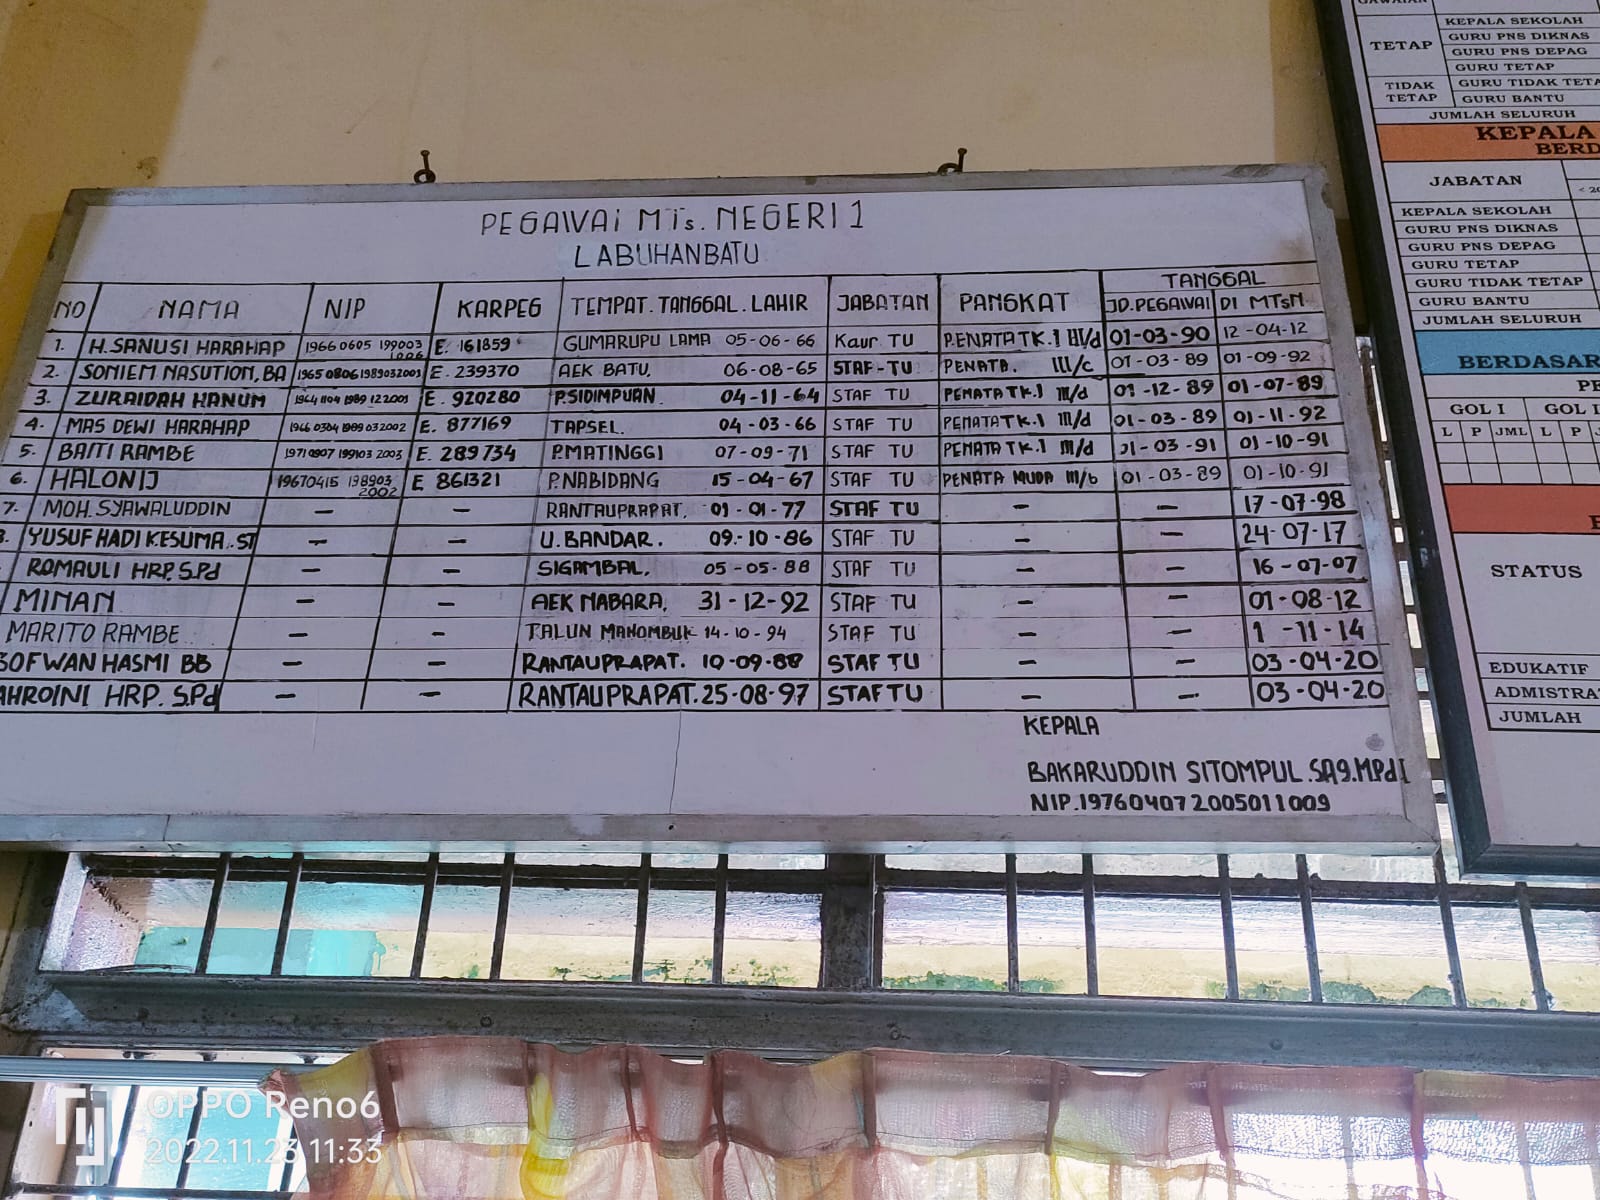 PEGAWAI MTs. NEGERI 1
LABUHANBATU
NO NAMA NIP KARPEG TEMPAT. TANGGAL. LAHIR JABATAN PANGKAT TANGGAL
JD. PEGAWAI DI MTsN.
1. H. SANUSI HARAHAP 19660605 199003 1006 E. 161859 GUMARUPU LAMA 05-06-66 Kaur TU PENATA TK. I III/d 01-03-90 12-04-12
2. SONIEM NASUTION, BA 19650806 1989032003 E. 239370 AEK BATU. 06-08-65 STAF-TU PENATA. III/c 01-03-89 01-09-92
3. ZURAIDAH HANUM 1964 1104 1989 12 2001 E. 920280 P.SIDIMPUAN 04-11-64 STAF TU PENATA TK. I III/d 01-12-89 01-07-89
4. MAS DEWI HARAHAP 1966 0304 1989 03 2002 E. 877169 TAPSEL. 04-03-66 STAF TU PENATA TK. I III/d 01-03-89 01-11-92
5. BAITI RAMBE 19710907 199103 2003 E. 289734 P.MATINGGI 07-09-71 STAF TU PENATA TK. I III/d 01-03-91 01-10-91
6. HALONIJ 19670415 198903 2002 E 861321 P.NABIDANG 15-04-67 STAF TU PENATA MUDA III/b 01-03-89 01-10-91
7. MOH. SYAWALUDDIN - - RANTAUPRAPAT. 01-01-77 STAF TU - - 17-07-98
YUSUF HADI KESUMA. ST - - U. BANDAR. 09-10-86 STAF TU - - 24-07-17
ROMAULI HRP, S.Pd - - SIGAMBAL. 05-05-88 STAF TU - - 16-07-07
MINAN - - AEK NABARA, 31-12-92 STAF TU - - 01-08-12
MARITO RAMBE - - TALUN MANOMBUK 14-10-94 STAF TU - - 1 -11-14
SOFWAN HASMI BB - - RANTAUPRAPAT. 10-09-88 STAF TU - - 03-04-20
AHROINI HRP. S.Pd - - RANTAUPRAPAT. 25-08-97 STAF TU - - 03-04-20
KEPALA
BAKARUDDIN SITOMPUL. SAg. M.Pd I
NIP. 197604072005011009
GAWAIAN
TETAP
KEPALA SEKOLAH
GURU PNS DIKNAS
GURU PNS DEPAG
GURU TETAP
TIDAK TETAP
GURU TIDAK TETA
GURU BANTU
JUMLAH SELURUH
KEPALA
BERD
JABATAN
< 20
KEPALA SEKOLAH
GURU PNS DIKNAS
GURU PNS DEPAG
GURU TETAP
GURU TIDAK TETAP
GURU BANTU
JUMLAH SELURUH
BERDASAR
PE
GOL I GOL I
L P JML L P J
STATUS
EDUKATIF
ADMISTRA
JUMLAH
OPPO Reno6
2022.11.23 11:33